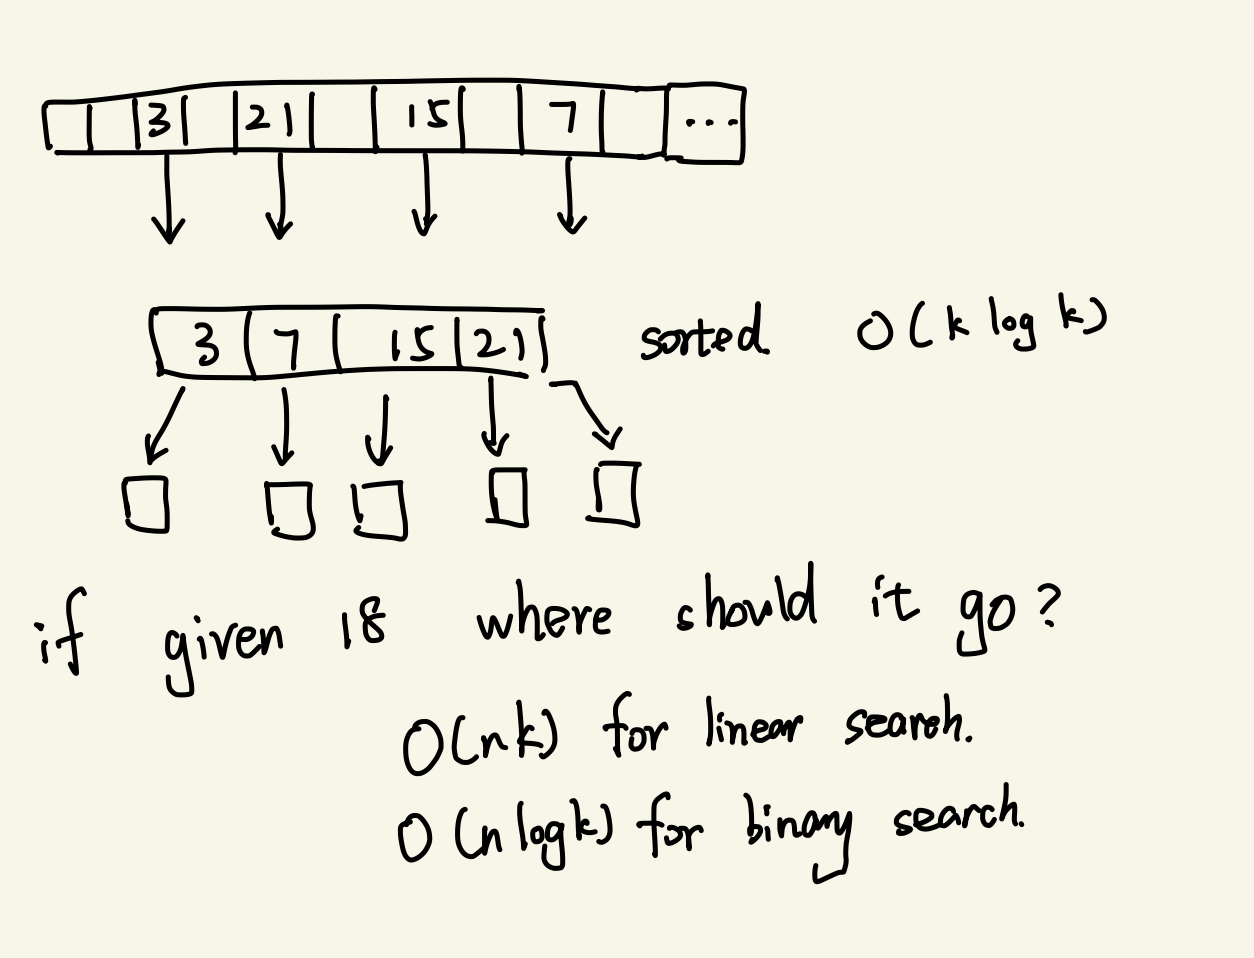 3 21 15 7 ...
3 7 15 21 sorted O(k log k)
if given 18 where should it go?
O(nk) for linear search.
O(n log k) for binary search.